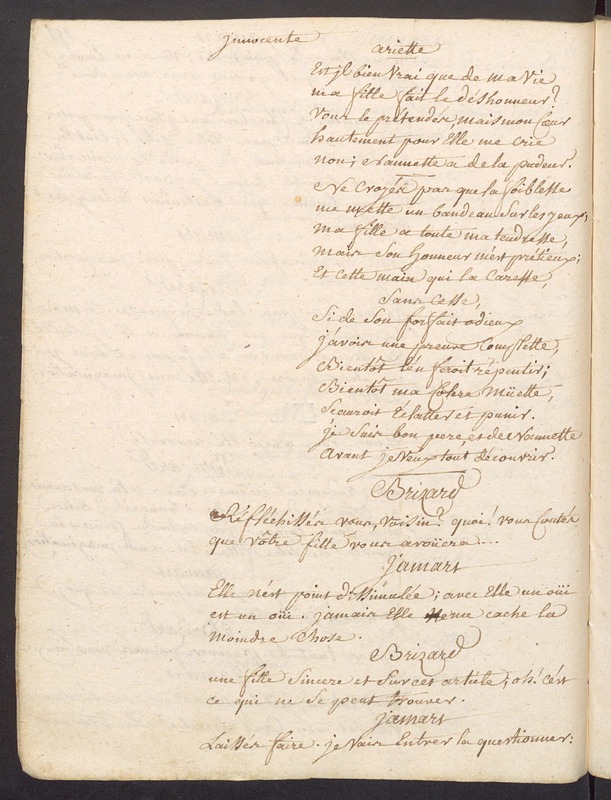 jnnocente
ariette
Est jl bien vrai que de ma vie
ma fille fait le déshonneur?
Vous le prétendés, mais mon Cœur
hautement pour Elle me crie
non; Nannette a de la pudeur.
Ne Croyés pas que la foiblesse
me mette un bandeau sur les yeux;
ma fille a toute ma tendresse,
mais son honneur m'est prétieux;
Et cette main qui la Caresse,
Sans Cesse,
Si de son forfait odieux
j'avois une preuve Complette,
Bientôt l'en feroit répentir;
Bientôt ma Colere müette,
Sçauroit Éclatter et punir.
je suis bon pere, et de Nannette
avant je veux tout découvrir.
Brizard
Réfléchissés vous, voisin? quoi! vous Contés
que vôtre fille vous avoüera...
jamart
Elle n'est point dissimulée; avec Elle un oüi
est un oüi. jamais Elle ne me cache la
moindre Chose.
Brizard
une fille Sincere et Sur cet article, oh! c'est
ce qui ne se peut trouver.
jamart
Laissés faire. je vais Entrer la questionner: